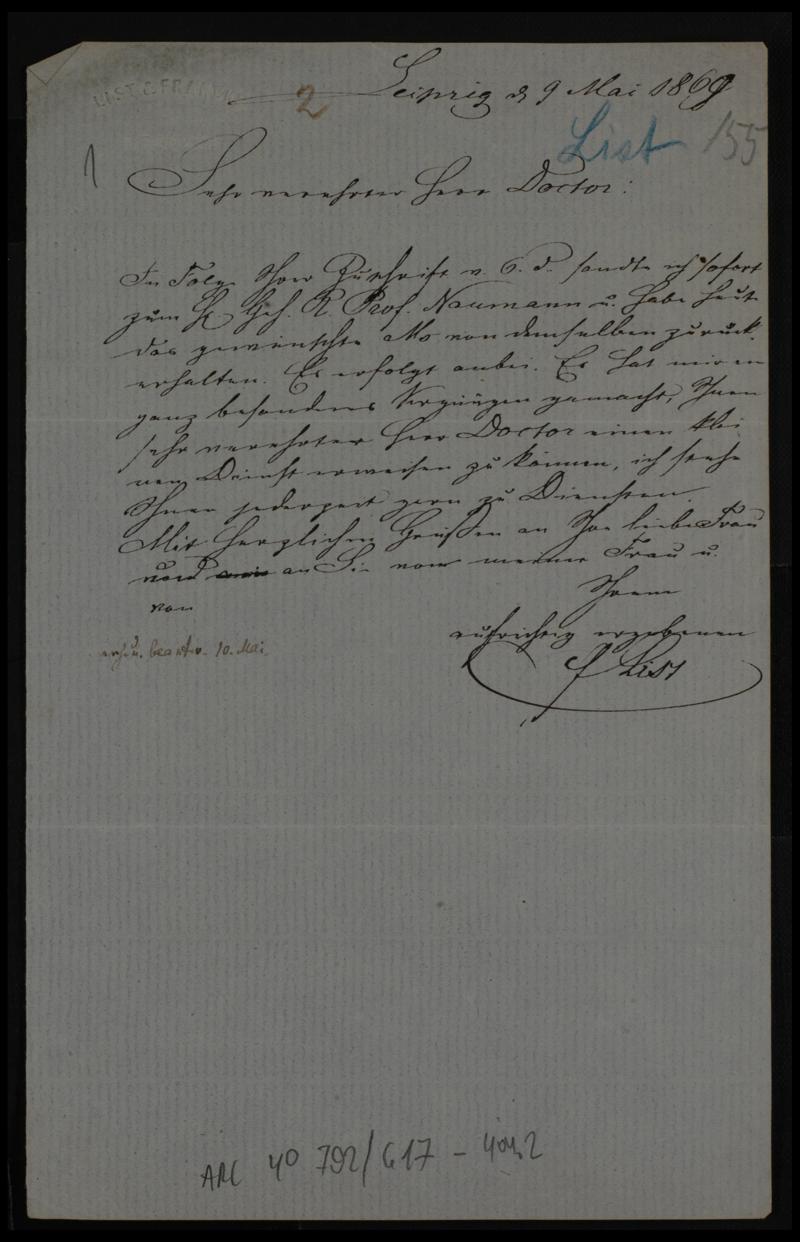 LIST & FRANCKE
2
Leipzig d 9 Mai 1869
List 155
1
Sehr verehrter Herr Doctor:
In Folge Ihrer Zuschrift v. 6. d. sandte ich sofort
zum H. Geh. R. Prof. Naumann u. habe heut
das gewünschte Ms von demselben zurück
erhalten. Es erfolgt anbei. Es hat mir ein
ganz besonderes Vergnügen gemacht, Ihnen
sehr verehrter Herr Doctor einen klei
nen Dienst erweisen zu können, ich stehe
Ihnen jederzeit gern zu Diensten.
Mit herzlichen Grüssen an Ihre liebe Frau
und an Sie von meiner Frau u.
von
Ihrem
aufrichtig ergebenen
F List
erh. u. beantw. 10. Mai
ARC 4° 792/G17 - 404,2